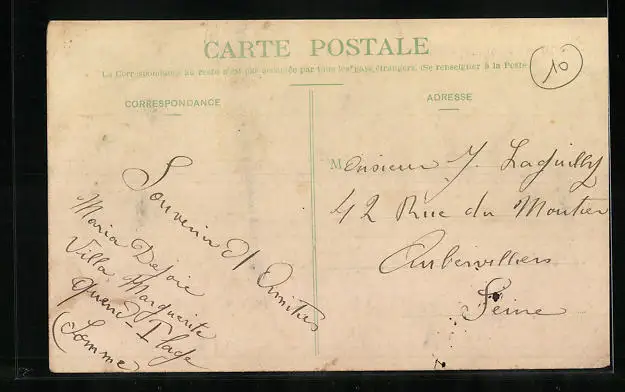 CARTE POSTALE
La Correspondance au recto n'est pas acceptée par tous les pays étrangers. (Se renseigner à la Poste
10
CORRESPONDANCE
Souvenir & Amitiés
Maria Dejoie
Villa Marguerite
Quend-Plage
(Somme)
ADRESSE
Monsieur J. Laguilly
42 Rue du Moutier
Aubervilliers
Seine